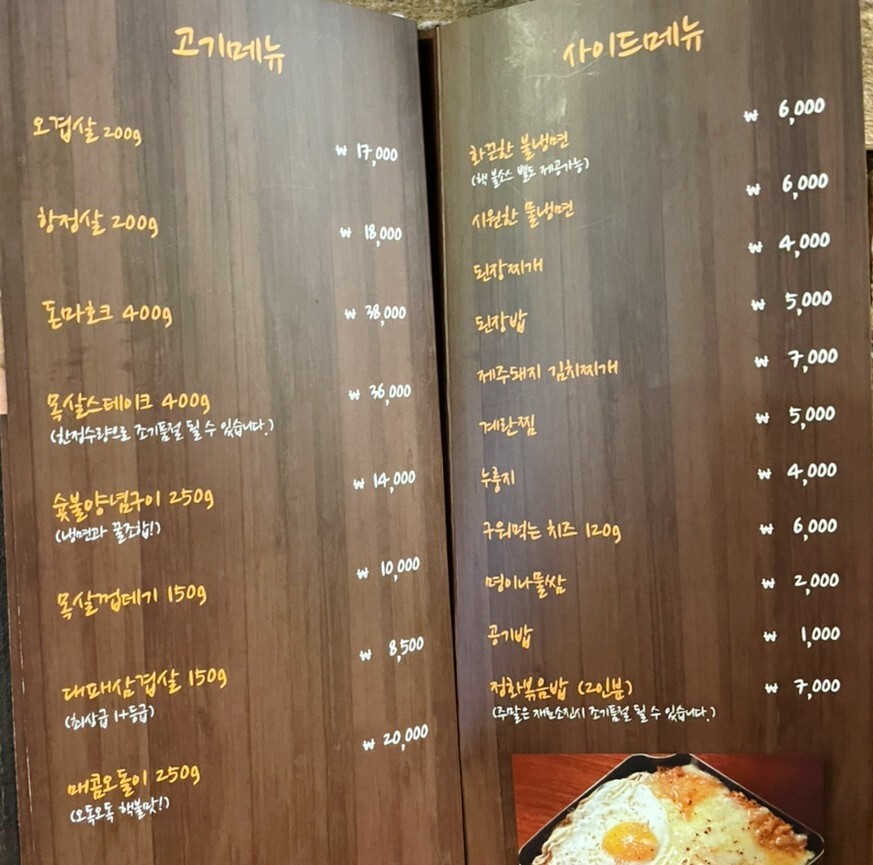 고기메뉴
오겹살 200g ₩ 17,000
항정살 200g ₩ 18,000
돈마호크 400g ₩ 38,000
목살스테이크 400g ₩ 36,000
(한정수량으로 조기품절 될 수 있습니다.)
숯불양념구이 250g ₩ 14,000
(냉면과 꿀조합!)
목살껍데기 150g ₩ 10,000
대패삼겹살 150g ₩ 8,500
(최상급 1+등급)
매콤오돌이 250g ₩ 20,000
(오독오독 핵불맛!)
사이드메뉴
화끈한 불냉면 ₩ 6,000
(핵 불소스 별도 제공가능)
시원한 물냉면 ₩ 6,000
된장찌개 ₩ 4,000
된장밥 ₩ 5,000
제주돼지 김치찌개 ₩ 7,000
계란찜 ₩ 5,000
누룽지 ₩ 4,000
구워먹는 치즈 120g ₩ 6,000
명이나물쌈 ₩ 2,000
공기밥 ₩ 1,000
정화볶음밥 (2인분) ₩ 7,000
(주말은 재료소진시 조기품절 될 수 있습니다.)